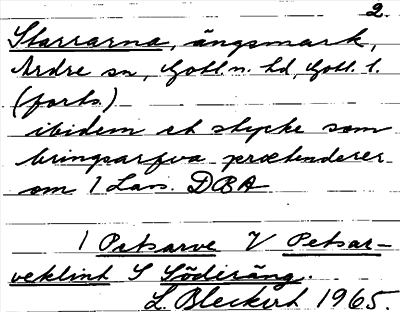 2.
Starrarna, ängsmark,
Ardre sn, Gotl. n. hd, Gotl. l.
(forts.)
ibidem et stycke som
bringsarfva prætenderer
om 1 Las. DBA
1 Petsarve V Petsar-
veklint S Söderäng.
L. Bleckert 1965.